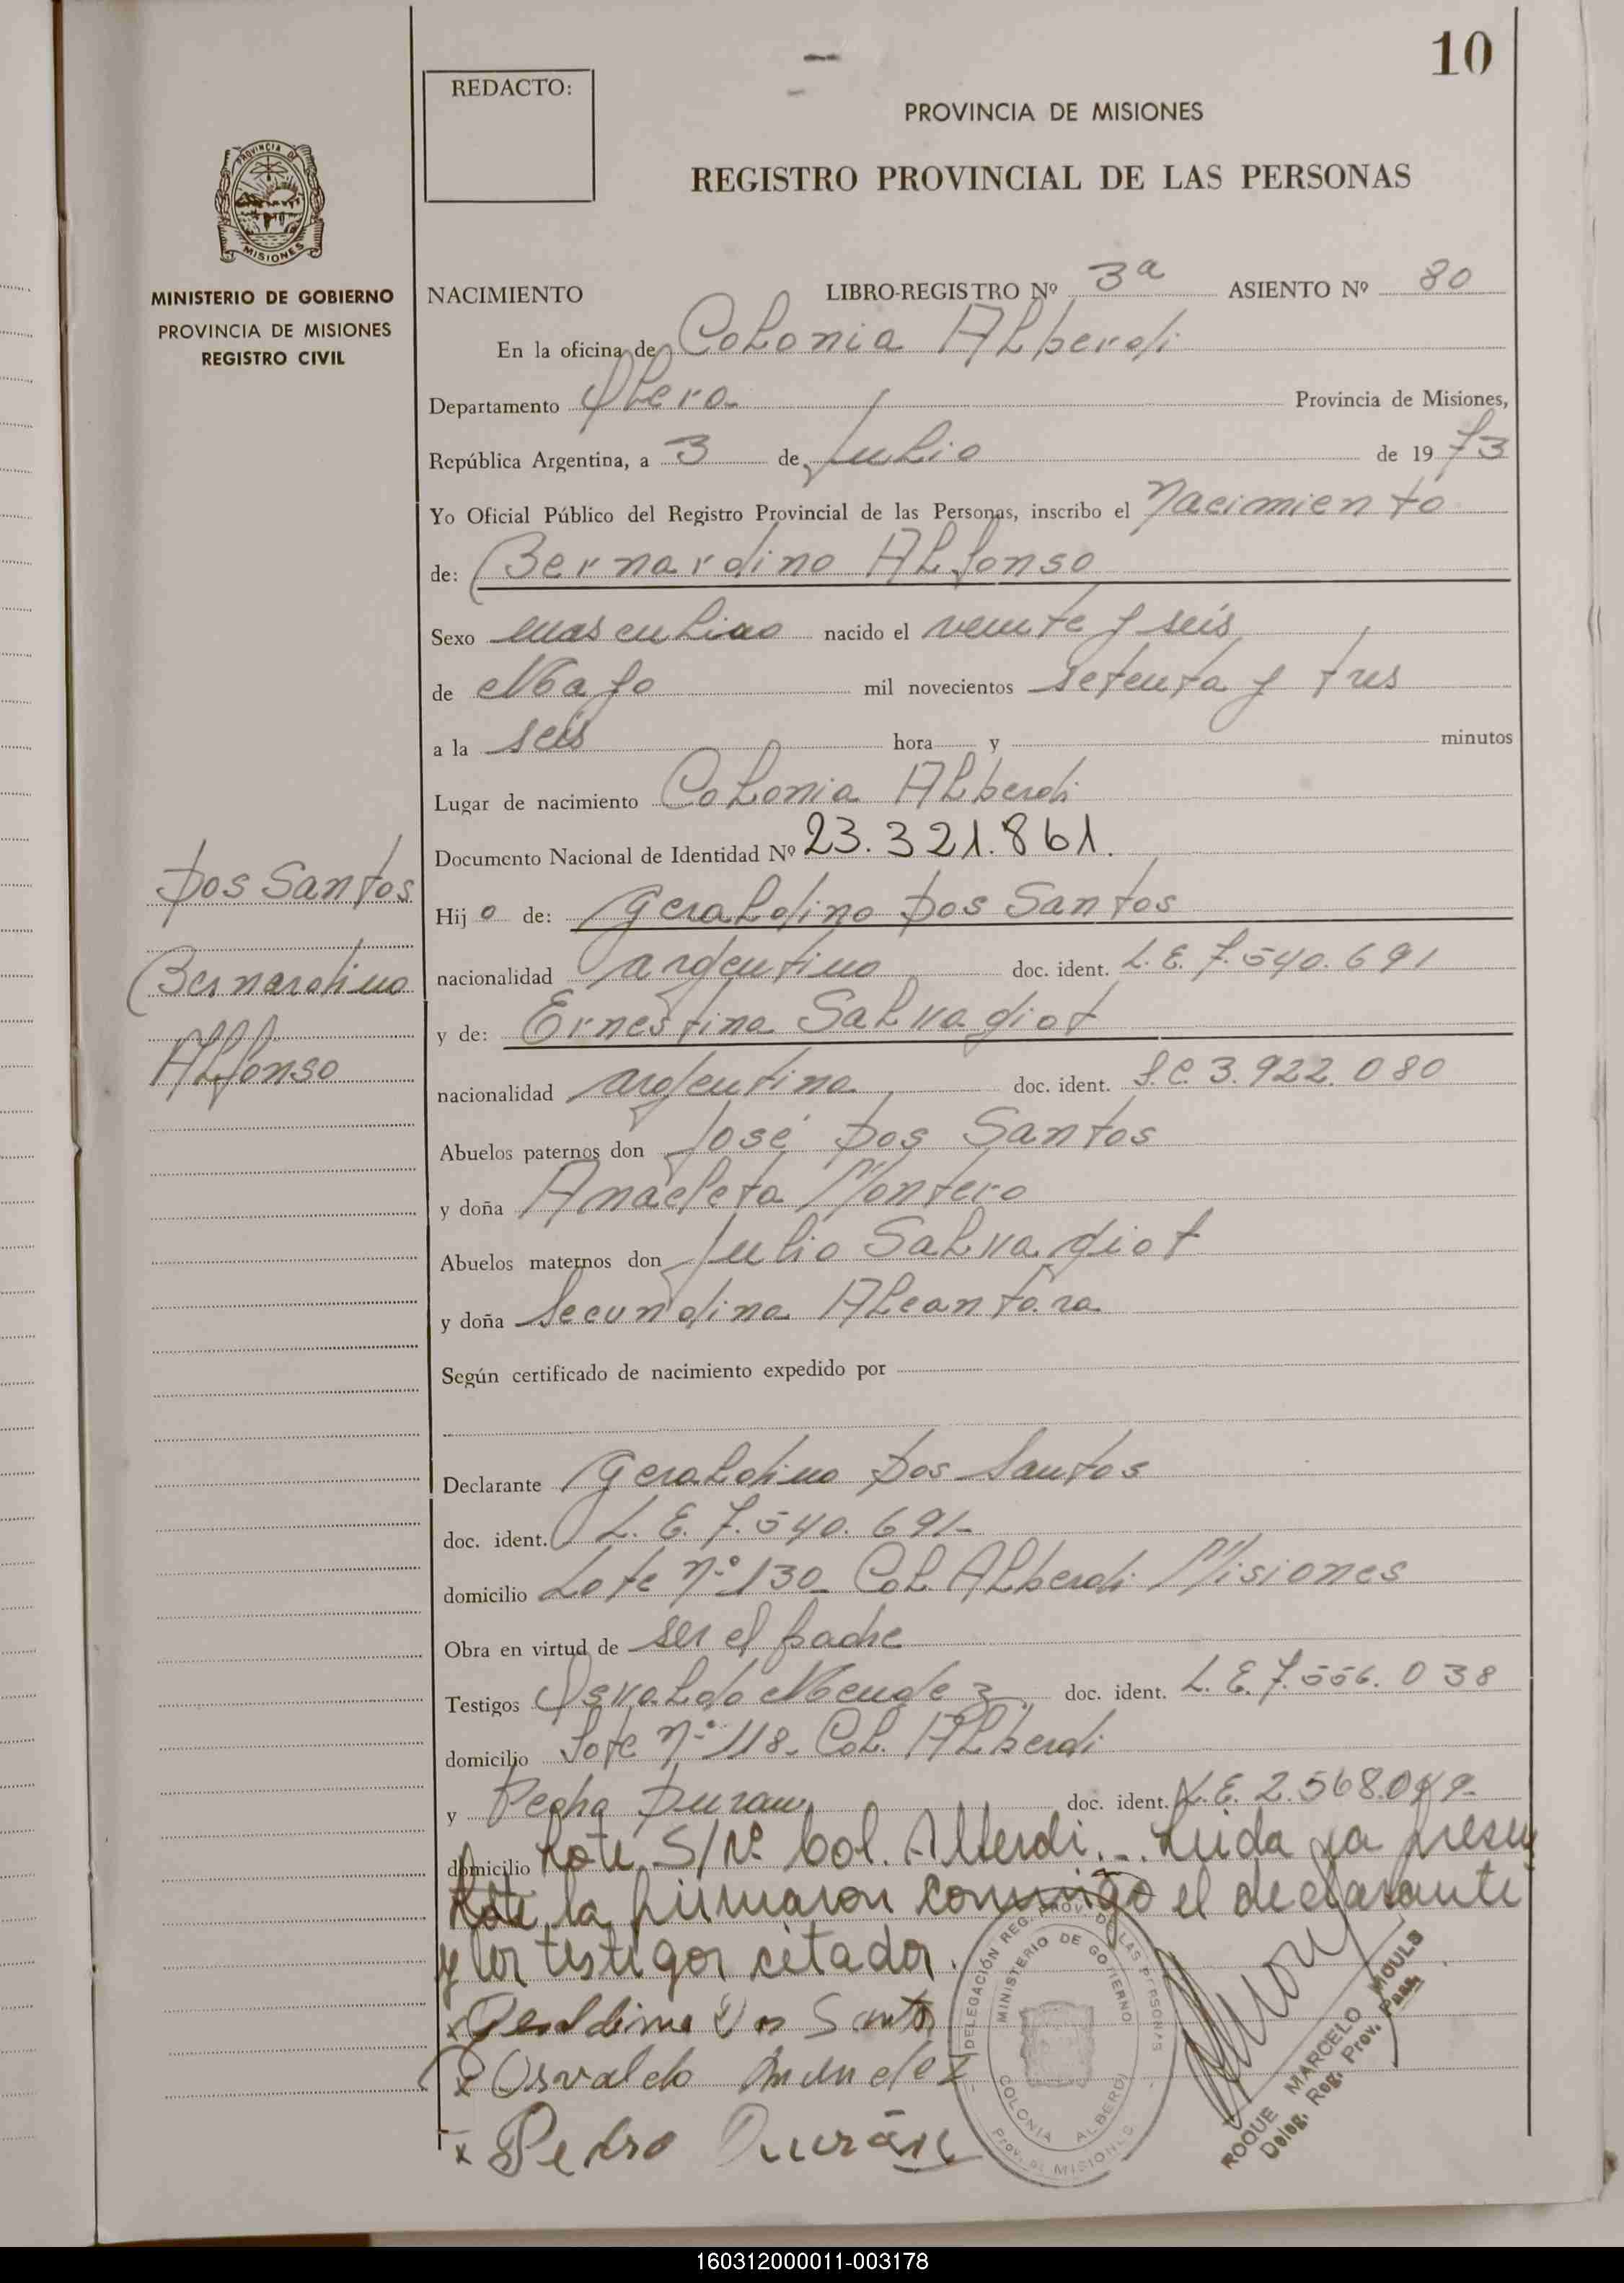 10
REDACTO:
PROVINCIA DE MISIONES
REGISTRO PROVINCIAL DE LAS PERSONAS
PROVINCIA DE
MISIONES
MINISTERIO DE GOBIERNO
PROVINCIA DE MISIONES
REGISTRO CIVIL
NACIMIENTO LIBRO-REGISTRO Nº 3ª ASIENTO Nº 80
En la oficina de Colonia Alberdi
Departamento Obera- Provincia de Misiones,
República Argentina, a 3 de Julio de 1973
Yo Oficial Público del Registro Provincial de las Personas, inscribo el Nacimiento
de: Bernardino Alfonso
Sexo masculino nacido el veinte y seis
de Mayo mil novecientos setenta y tres
a la seis hora y minutos
Lugar de nacimiento Colonia Alberdi
Documento Nacional de Identidad Nº 23.321.861.
Dos Santos
Bernardino
Alfonso
Hijo de: Geraldino Dos Santos
nacionalidad argentino doc. ident. L.E. 7.540.691
y de: Ernestina Salvagiot
nacionalidad argentina doc. ident. L.C. 3.922.080
Abuelos paternos don José Dos Santos
y doña Anacleta Montero
Abuelos maternos don Julio Salvagiot
y doña Secundina Alcantara
Según certificado de nacimiento expedido por
Declarante Geraldino Dos Santos
doc. ident. L.E. 7.540.691-
domicilio Lote Nº 130- Col. Alberdi Misiones
Obra en virtud de ser el padre
Testigos Osvaldo Mendez doc. ident. L.E. 7.556.038
domicilio Lote Nº 118- Col. Alberdi
y Pedro Duran doc. ident. L.E. 2.568.049-
domicilio Lote S/Nº Col. Alberdi.-. Leida la presen
te, la firmaron conmigo el declarante
y los testigos citados.
x Geraldino Dos Santo
x Osvaldo Mendez
x Pedro Durán
DELEGACIÓN REG. PROV. DE LAS PERSONAS
MINISTERIO DE GOBIERNO
COLONIA ALBERDI
Prov. de MISIONES
ROQUE MARCELO MOULS
Deleg. Reg. Prov. Pers.
160312000011-003178